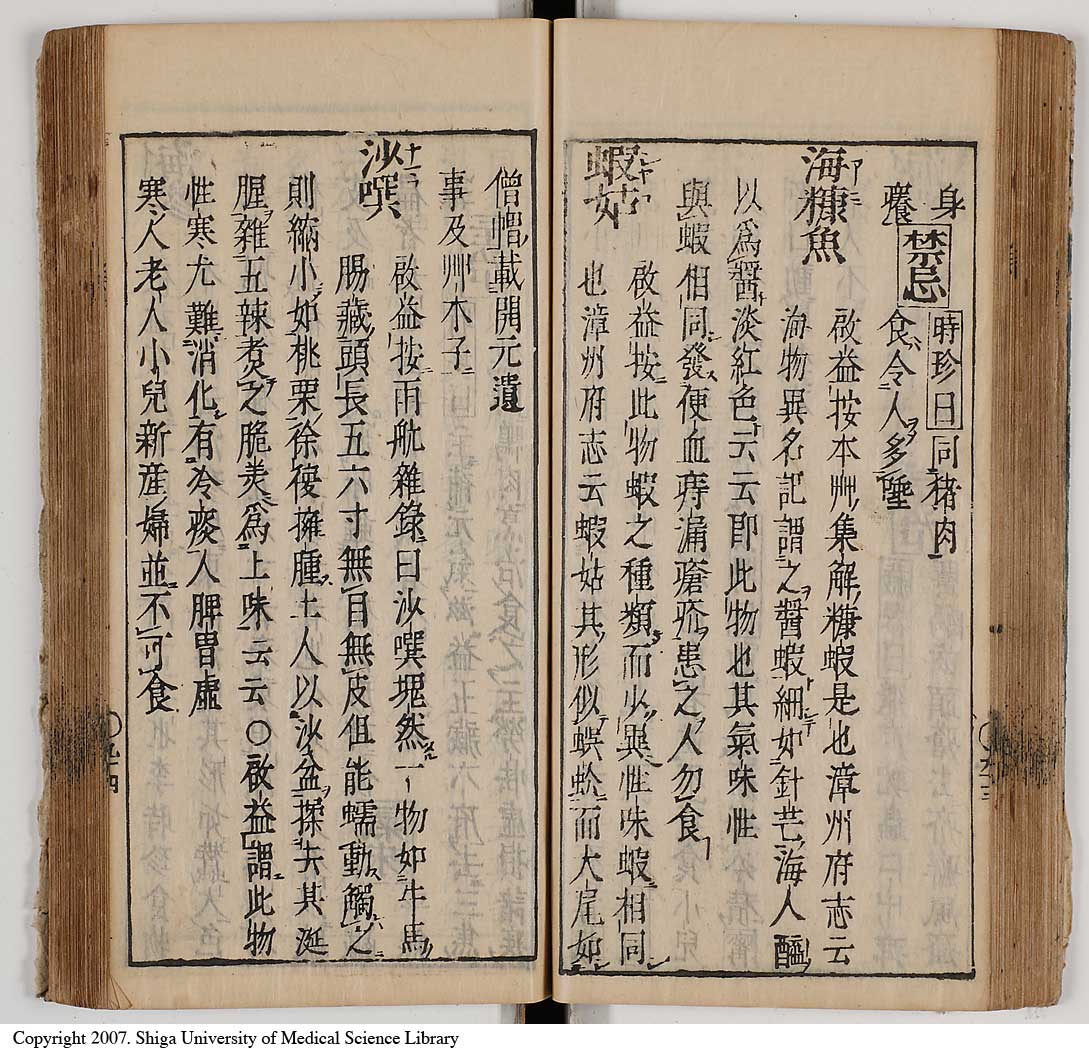 身
養禁忌時珍曰同猪肉
食令人多唾
海糠魚
啟益按本艸集解糠蝦是也漳州府志云
海物異名記謂之醬蝦細如針芒海人醢
以為醤淡紅色云云即此物也其氣味性
與蝦相同發便血痔漏瘡疥患之人勿食
蝦姑
啟益按此物蝦之種類而少異性味蝦相同
也漳州府志云蝦姑其形似蜈蚣而大尾如
僧帽載開元遺
事及艸木子
沙噀
啟益按雨航雜錄曰沙噀塊然一物如牛馬
腸藏頭長五六寸無目無皮但能蠕動觸之
則縮小如桃栗徐復擁腫土人以沙盆探去其涎
腥雜五辣煮之脆美為上味云云〇啟益謂此物
性寒尤難消化有冷痰人脾胃虛
寒人老人小兒新産婦並不可食
〇九十三
〇九十四
Copyright 2007. Shiga University of Medical Science Library